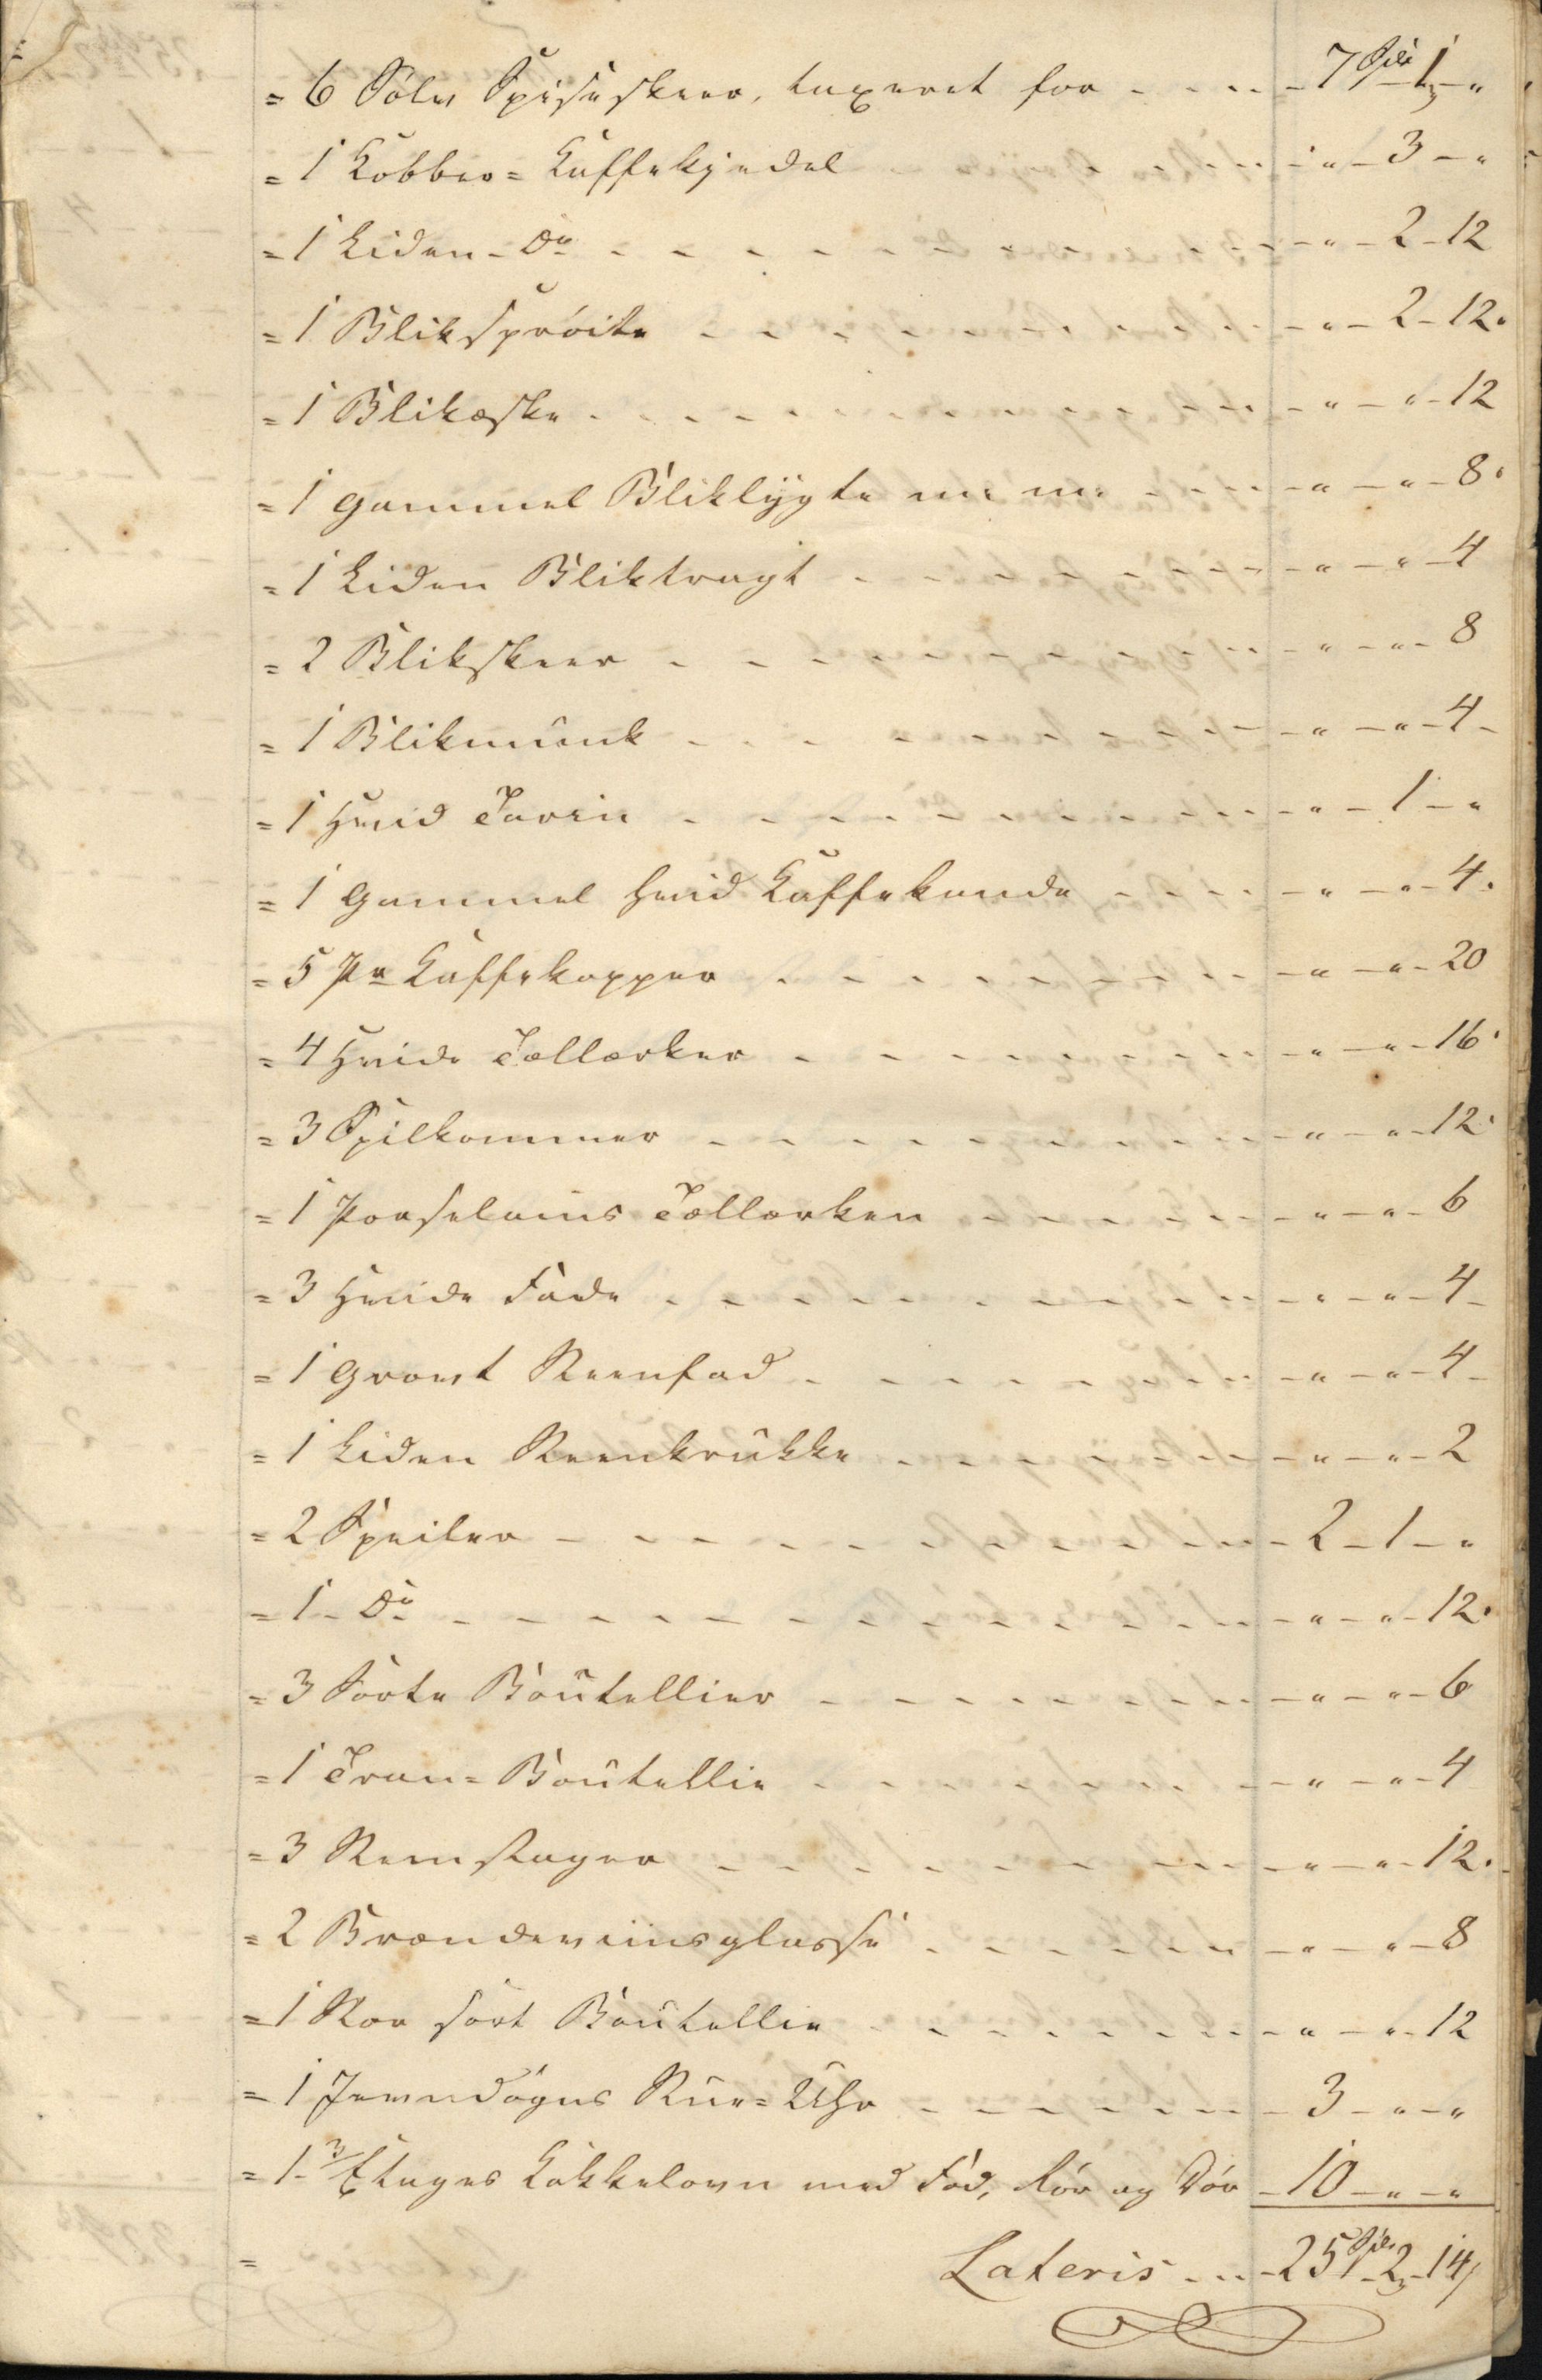 = 6 Sølv Spiseskeer, taxeret for - - - - - 7 Spd 1 - "
= 1 Kobber = Kaffekjedel - - " - 3 - "
= 1 Liden - Do - - - " - 2 - 12
= 1 Bliksprøite - - - " - 2 - 12.
= 1 Blikæske - - - " - " - 12
= 1 gammel Bliklygte m: m: - - - " - " - 8.
= 1 Liden Bliktragt - - - " - " - 4
= 2 Blikskeer - - - " - " - 8
= 1 Blikmunk - - - " - " - 4 -
= 1 Hvid Tarin - - - " - 1 - "
= 1 gammel hvid Kaffekande - - - " - " - 4.
= 5 Pr Kaffekopper - - - " - " - 20
= 4 Hvide Tællærker - - - " - " - 16.
= 3 Spilkommer - - - " - " - 12.
= 1 Porselains Tællærken - - - " - " - 6
= 3 Hvide Fade - - - " - " - 4 -
= 1 Grovt Steenfad - - - " - " - 4 -
= 1 Liden Steenkrukke - - - " - " - 2
= 2 Speiler - - - 2 - 1 - "
= 1 - Do - - - " - " - 12.
= 3 Sorte Boutellier - - - " - " - 6
= 1 Tran = Boutellie - - - " - " - 4
= 3 Steinstager - - - " - " - 12.
= 2 Brændeviinsglasse - - - " - " - 8
= 1 Stor sort Boutellie - - - " - " - 12
= 1 Jevndøgns Stue = Uhr - - - 3 - " - "
= 1 - 3 Etages Kakkelovn med Fod, Rør og Dør - 10 - " - "
= Lateris - - - 25 Spd 2 - 14